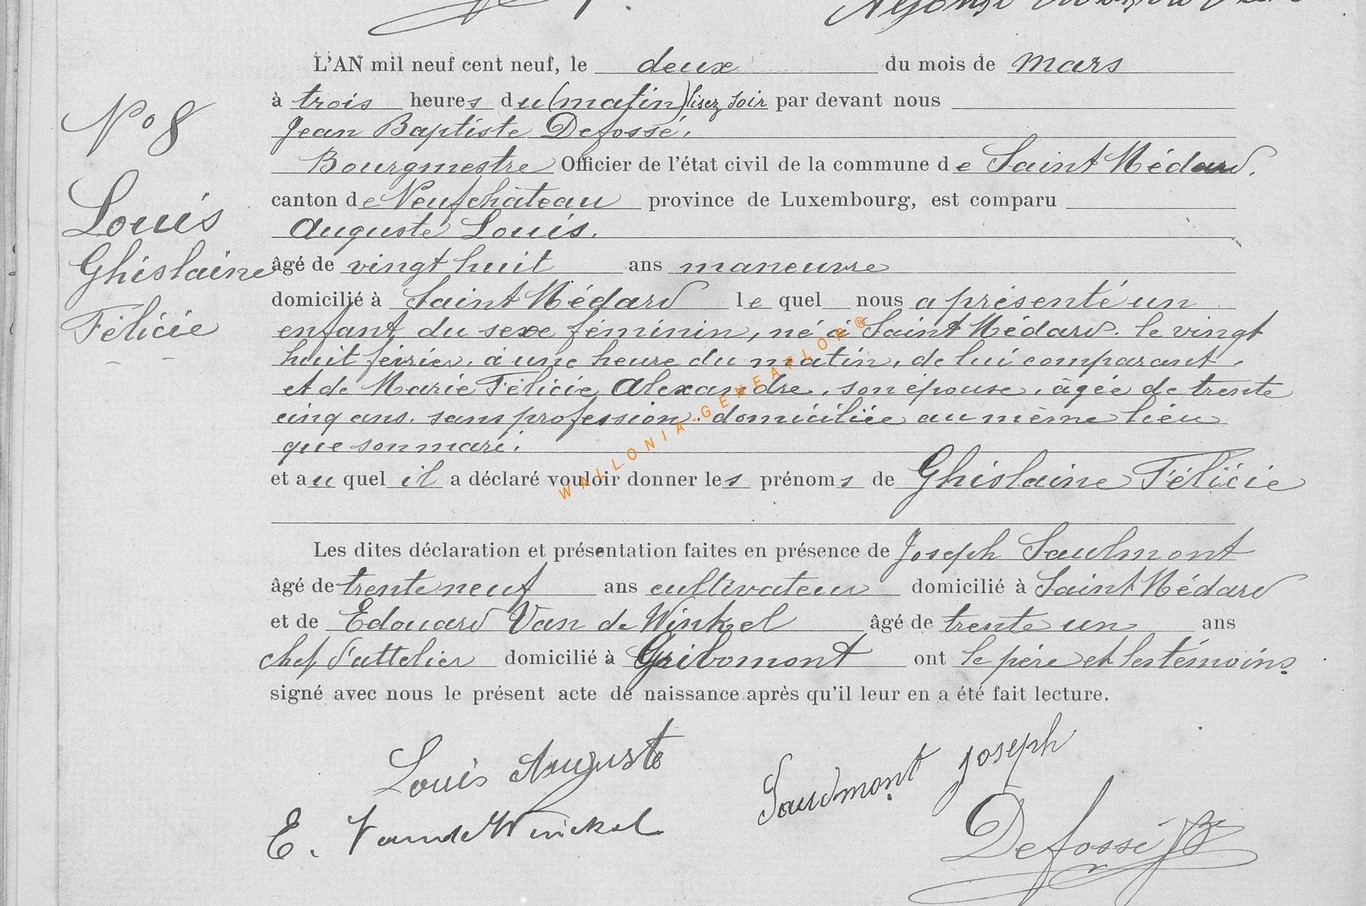 L'AN mil neuf cent neuf, le deux du mois de mars
à trois heures du (matin) lisez soir par devant nous
Jean Baptiste Defossé,
Bourgmestre Officier de l'état civil de la commune de Saint Médard,
canton de Neufchâteau province de Luxembourg, est comparu
Auguste Louis,
âgé de vingt huit ans manœuvre
domicilié à Saint Médard le quel nous a présenté un
enfant du sexe féminin, né à Saint Médard, le vingt
huit février, à une heure du matin, de lui comparant
et de Marie Félicie Alexandre, son épouse, âgée de trente
cinq ans, sans profession domiciliée au même lieu
que son mari;
et au quel il a déclaré vouloir donner les prénoms de Ghislaine Félicie
Les dites déclaration et présentation faites en présence de Joseph Saudmont
âgé de trente neuf ans cultivateur domicilié à Saint Médard
et de Edouard Van de Winkel âgé de trente un ans
chef d'attelier domicilié à Gribomont ont le père et les témoins
signé avec nous le présent acte de naissance après qu'il leur en a été fait lecture.
Louis Auguste
Saudmont Joseph
E. VandeWinckel
Defossé JB
N° 8
Louis
Ghislaine
Félicie
WALLONIA-GENEAFLOR®